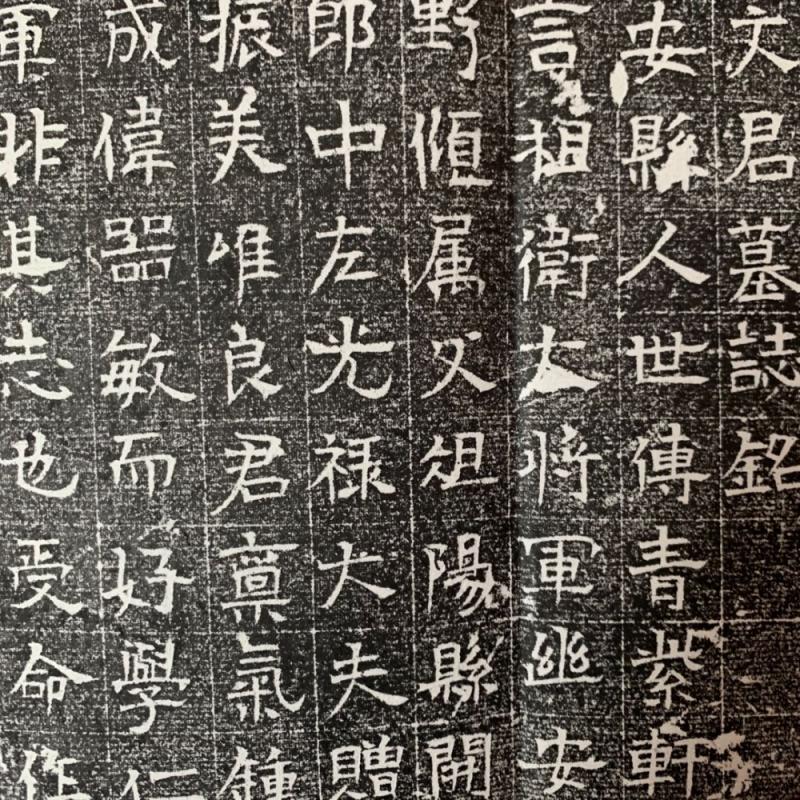 文君墓誌銘
安縣人世傳青紫軒
言祖衛大將軍幽安
野傾属父俎陽縣開
郎中左光禄大夫贈
振美唯良君禀氣鍾
成偉器敏而好學仁
軍非其志也受命作